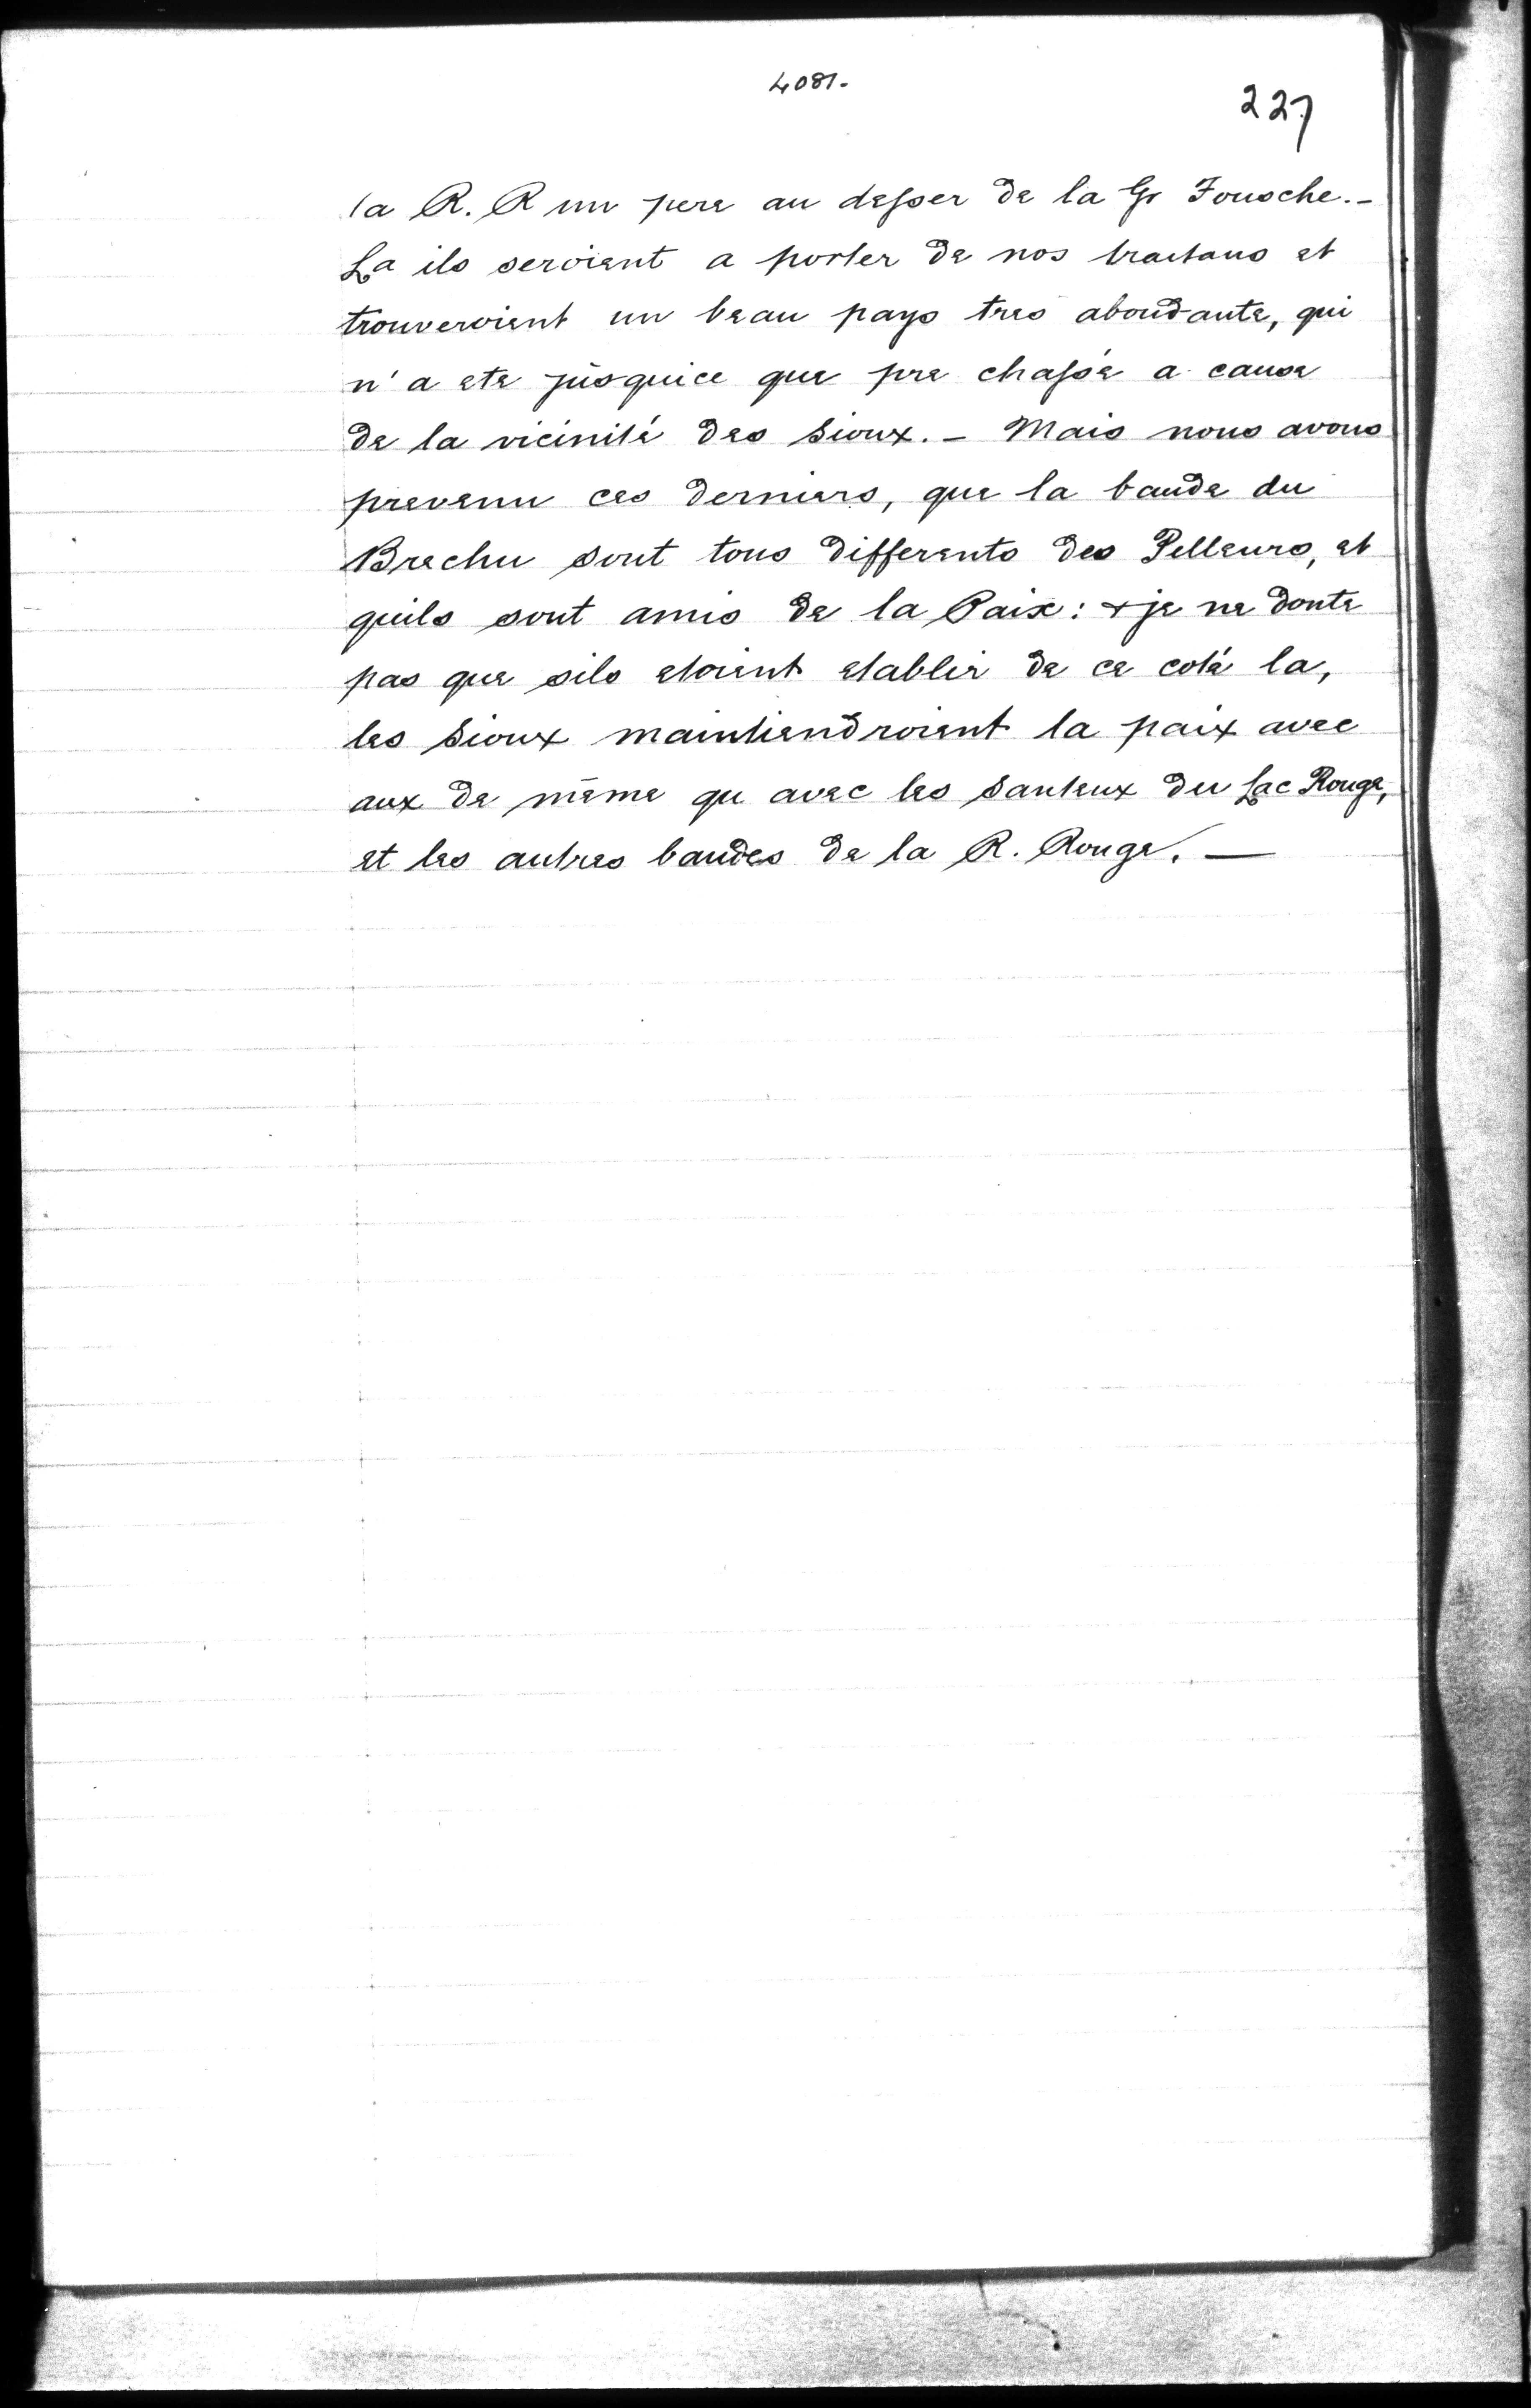 4081.
227
la R. R un pere au desser de la Gr Fousche. -
La ils seroient a porter de nos traitans et
trouveroient un beau pays tres abondante, qui
n'a ete jusquice que pre chassé a cause
de la vicinité des Sioux. - Mais nous avons
prevenu ces derniers, que la bande du
Brechu sont tous differents des Pelleurs, et
quils sont amis de la Paix: + je ne doute
pas que sils etoient etablir de ce coté la,
les Sioux maintiendroient la paix avec
eux de même qu avec les Sauteux du Lac Rouge,
et les autres bandes de la R. Rouge. —